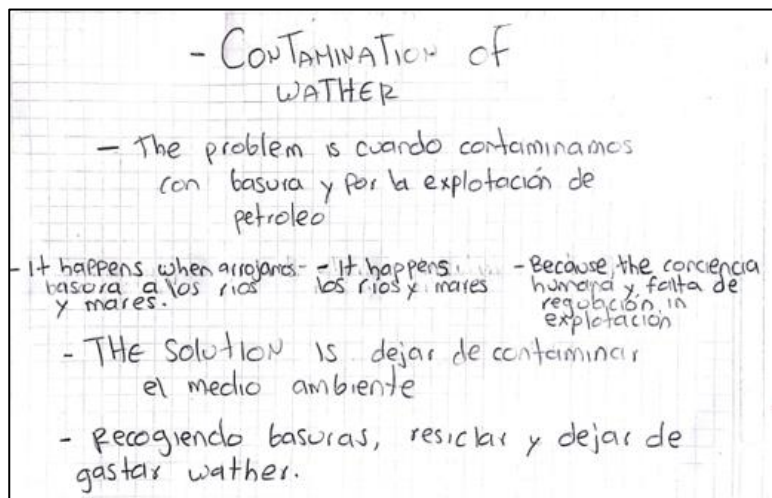 - CONTAMINATION OF
WATHER
- The problem is cuando contaminamos
con basura y por la explotación de
petroleo
- It happens when arrojamos
basura a los rios
y mares.
- It happens
los rios y mares
- Because, the conciencia
humana y falta de
regulación in
explotación
- THE SOLUTION IS dejar de contaminar
el medio ambiente
- Recogiendo basuras, resiclar y dejar de
gastar wather.